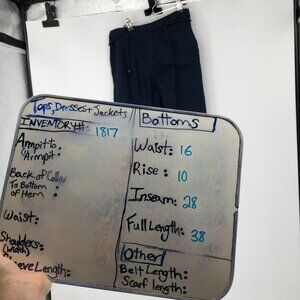 Tops, Dresses + Jackets
INVENTORY#: 1817
Armpit to
Armpit:
Back of Collar
To Bottom:
of Hem
Waist:
Shoulders:
(width)
Sleeve Length:
Bottoms
Waist: 16
Rise: 10
Inseam: 28
Full Length: 38
Other
Belt Length:
Scarf length: